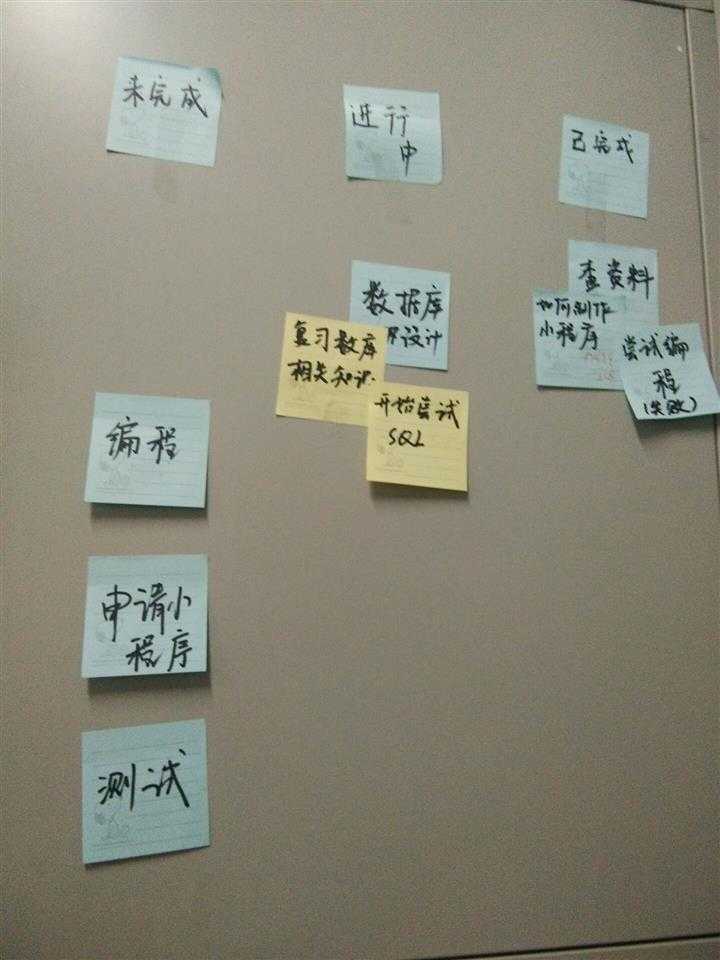 未完成
进行
中
已完成
数据库
设计
复习数库
相关知识
开始尝试
SQL
查资料
如何制作
小程序
尝试编
程
(失败)
编程
申请小
程序
测试